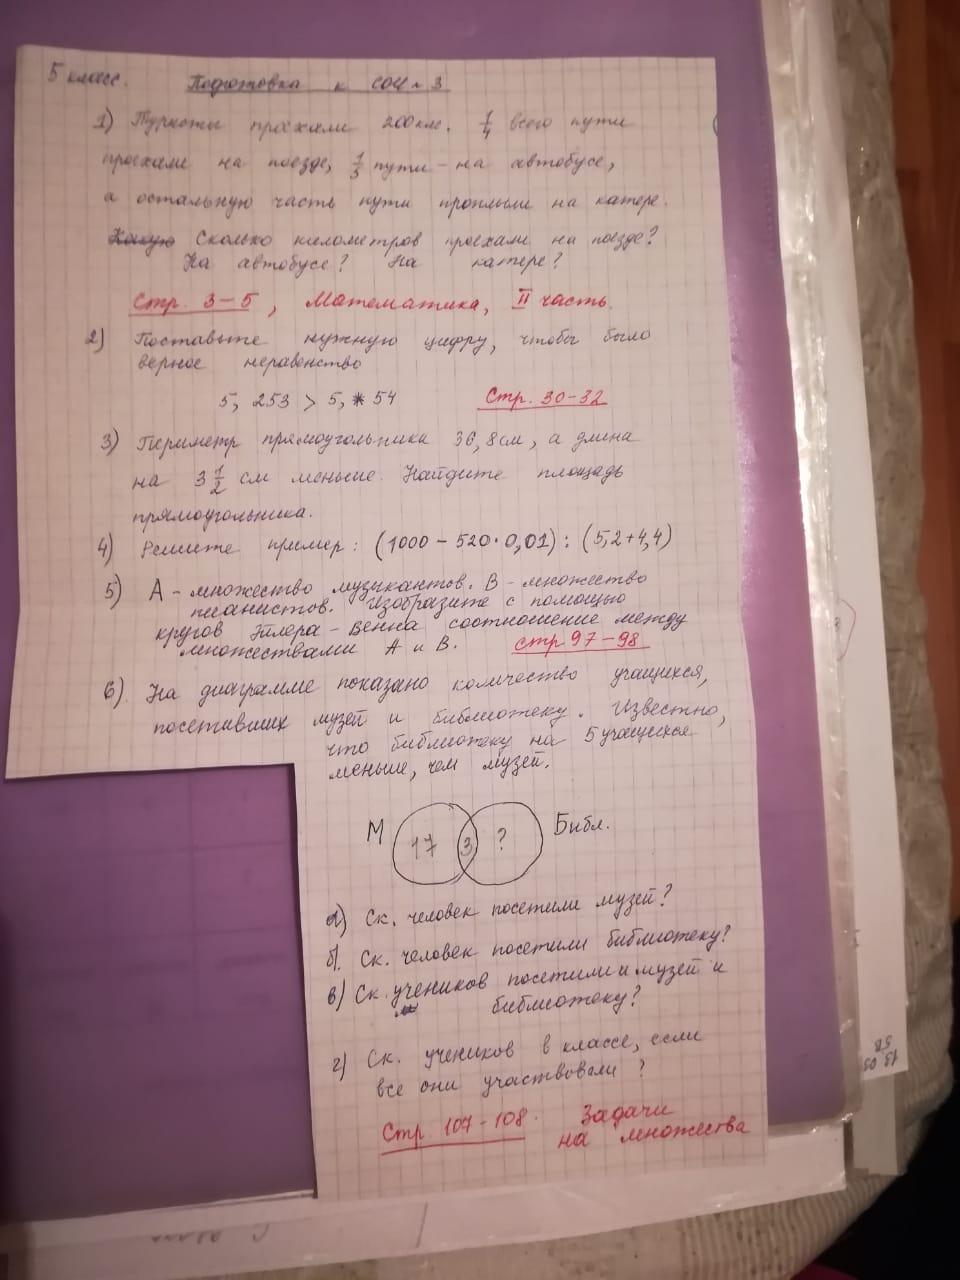 5 класс. Подготовка к СОЧ 3
1) Туристы проехали 200 км. 1/4 всего пути
проехали на поезде, 1/5 пути - на автобусе,
а остальную часть пути проплыли на катере.
Сколько километров проехали на поезде?
На автобусе? На катере?
Стр. 3-5, Математика, II часть.
2) Поставьте нужную цифру, чтобы было
верное неравенство
5, 253 > 5, * 54 Стр. 30-32
3) Периметр прямоугольника 36,8 см, а длина
на 3 1/2 см меньше. Найдите площадь
прямоугольника.
4) Решите пример: (1000 - 520 · 0,01) : (5,2+4,4)
5) А - множество музыкантов. В - множество
пианистов. Изобразите с помощью
кругов Эйлера - Венна соотношение между
множествами А и В. стр 97-98
6). На диаграмме показано количество учащихся,
посетивших музей и библиотеку. Известно,
что библиотеку на 5 учащихся
меньше, чем музей.
М 17 3 ? Библ.
а) Ск. человек посетили музей?
б). Ск. человек посетили библиотеку?
в) Ск. учеников посетили и музей и
библиотеку?
г) Ск. учеников в классе, если
все они участвовали?
Стр. 107-108. Задачи
на множества